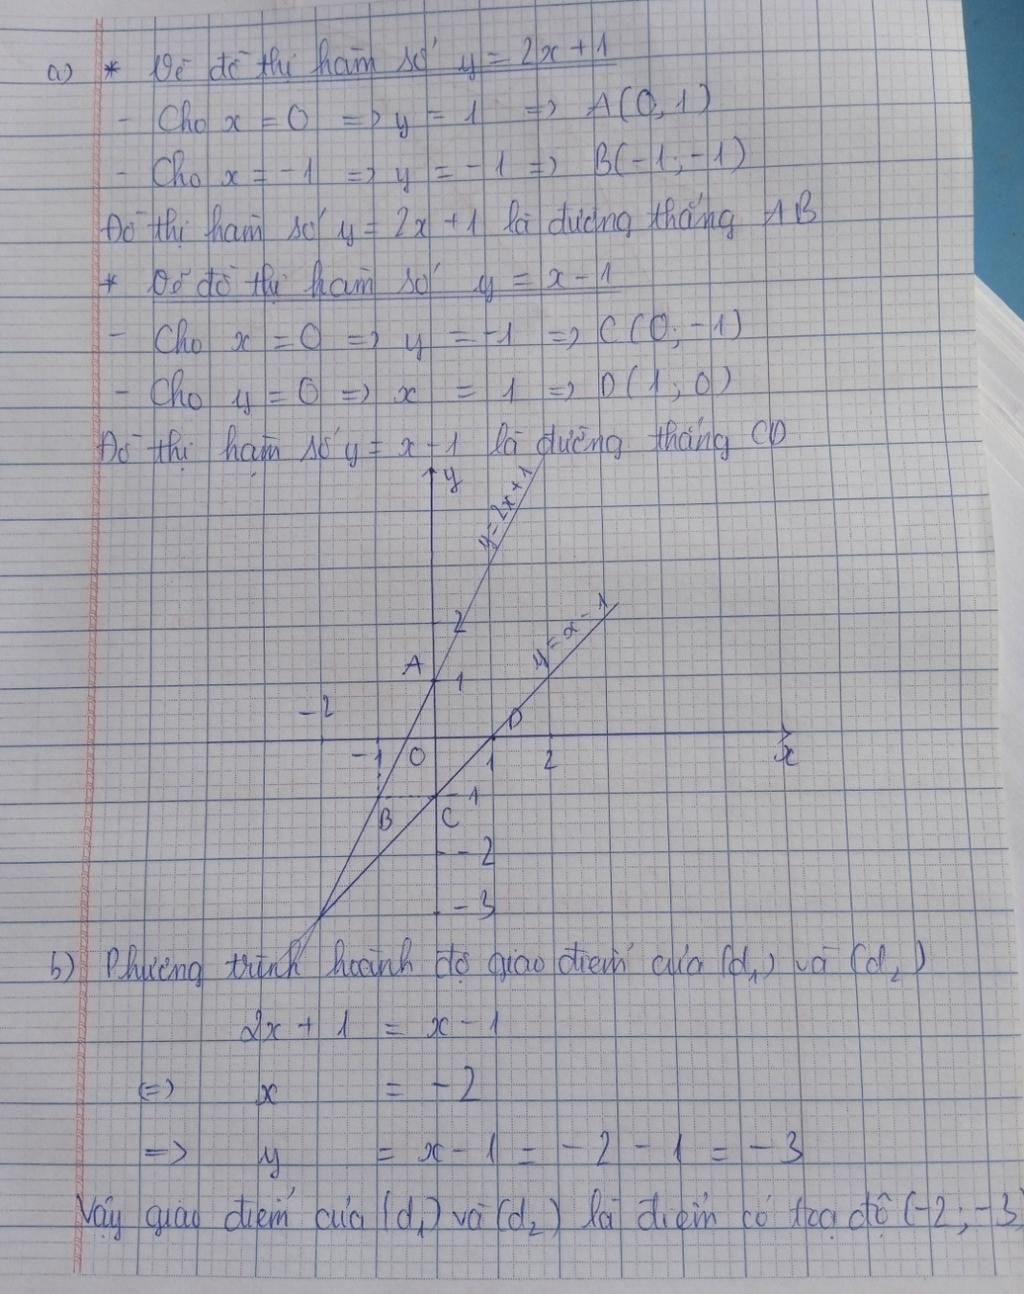 a) * Vẽ đồ thị hàm số y = 2x + 1
- Cho x = 0 => y = 1 => A(0, 1)
- Cho x = -1 => y = -1 => B(-1; -1)
Đồ thị hàm số y = 2x + 1 là đường thẳng AB
* Vẽ đồ thị hàm số y = x - 1
- Cho x = 0 => y = -1 => C(0; -1)
- Cho y = 0 => x = 1 => D(1; 0)
Đồ thị hàm số y = x - 1 là đường thẳng CD
y
y = 2x + 1
2
y = x - 1
A
1
-2
D
-1 0 1 2 x
B C -1
-2
-3
b) Phương trình hoành độ giao điểm của (d₁) và (d₂)
2x + 1 = x - 1
<=> x = -2
=> y = x - 1 = -2 - 1 = -3
Vậy giao điểm của (d₁) và (d₂) là điểm có toạ độ (-2; -3)